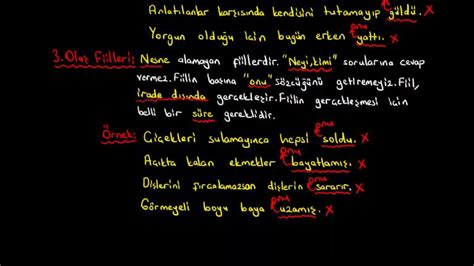 Anlatılanlar karşısında kendisini tutamayıp güldü. x
onu
Yorgun olduğu için bugün erken yattı. x
3. Oluş Fiilleri: Nesne alamayan fiillerdir. "Neyi, kimi" sorularına cevap
vermez. Fiilin başına "onu" sözcüğünü getiremeyiz. Fiil,
irade dışında gerçekleşir. Fiilin gerçekleşmesi için
belli bir süre gereklidir.
onu
Örnek: Çiçekleri sulamayınca hepsi soldu. x
onu
Açıkta kalan ekmekler bayatlamış. x
onu
Dişlerini fırçalamazsan dişlerin sararır. x
onu
Görmeyeli boyu baya uzamış. x